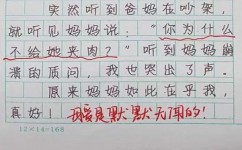 突然听到爸妈在吵架，
就听见妈妈说："你为什么
不给她夹肉？"听到妈妈崩
溃的质问，我也哭出了声。
原来妈妈如此在乎我，
真好！母爱是默默无闻的！
12×14=168